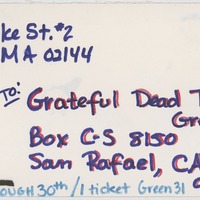 ke St. #2
MA 02144
TO:
Grateful Dead T
Gr
Box C-S 8150
San Rafael, CA
OUGH 30th / 1 ticket Green 31